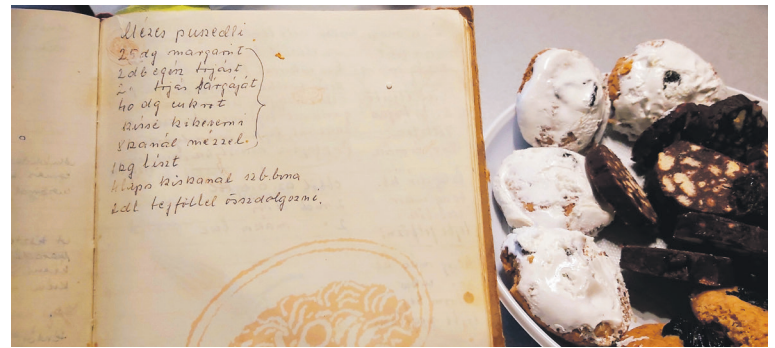 Mézes puszedli.
25 dg margarint
2 db egész tojást
2 tojás sárgáját
40 dg cukrot
kissé kikeverni
8 kanál mézzel.
1 kg liszt
4 lapos kiskanál szb. bona
2 dl tejföllel összdolgozni.